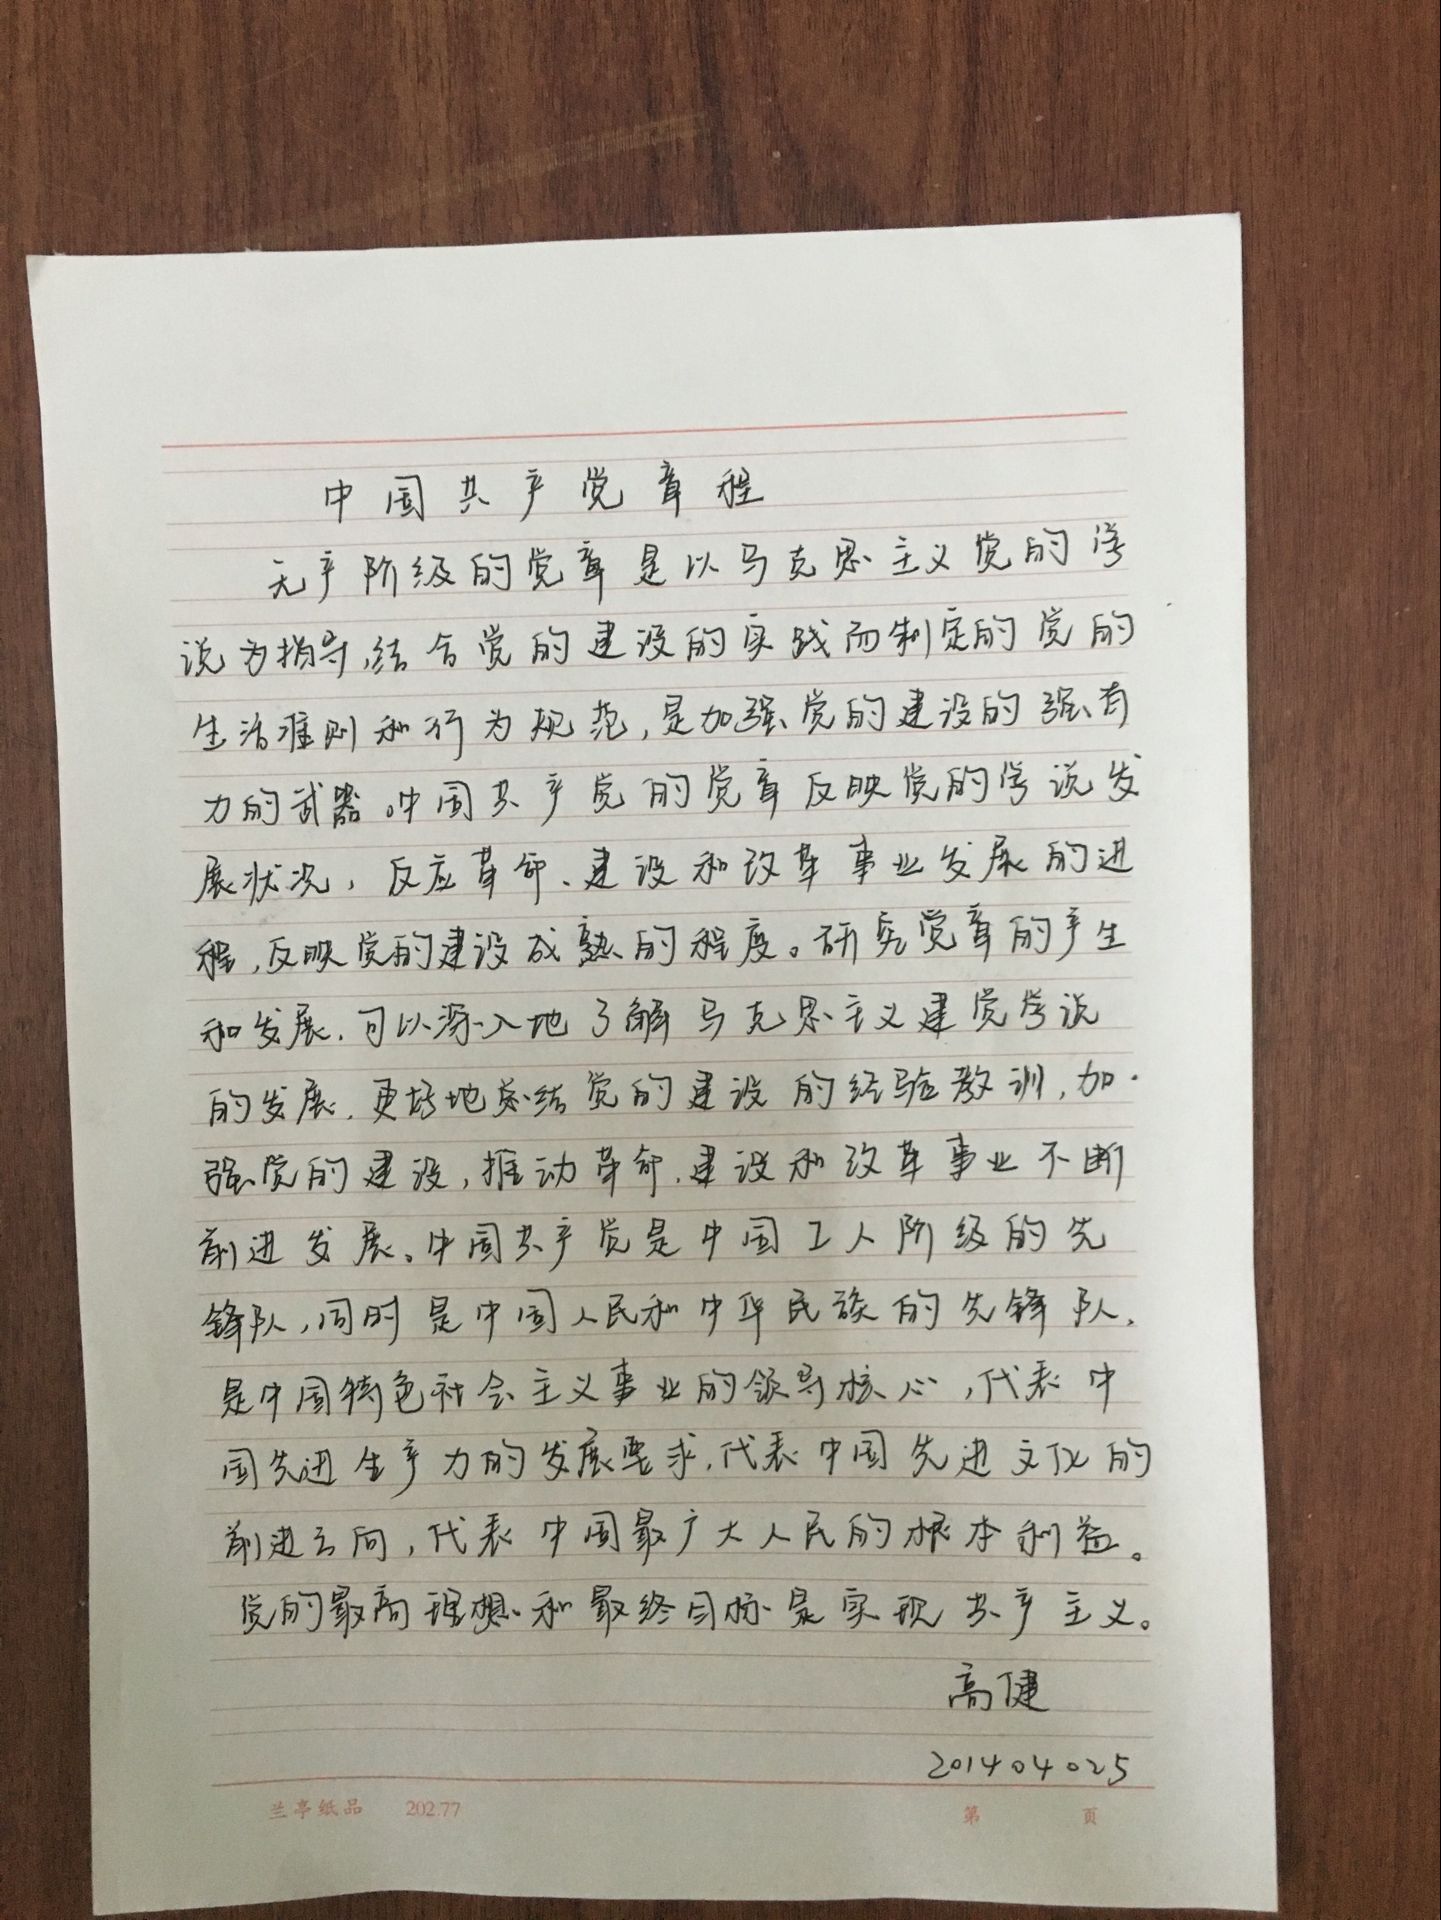 中国共产党章程
无产阶级的党章是以马克思主义党的学
说为指导,结合党的建设的实践而制定的党的
生活准则和行为规范,是加强党的建设的强有
力的武器。中国共产党的党章反映党的学说发
展状况,反应革命、建设和改革事业发展的进
程,反映党的建设成熟的程度。研究党章的产生
和发展,可以深入地了解马克思主义建党学说
的发展,更好地总结党的建设的经验教训,加
强党的建设,推动革命、建设和改革事业不断
前进发展。中国共产党是中国工人阶级的先
锋队,同时是中国人民和中华民族的先锋队,
是中国特色社会主义事业的领导核心,代表中
国先进生产力的发展要求,代表中国先进文化的
前进方向,代表中国最广大人民的根本利益。
党的最高理想和最终目标是实现共产主义。
高健
201404025
兰亭纸品 202.77 第 页